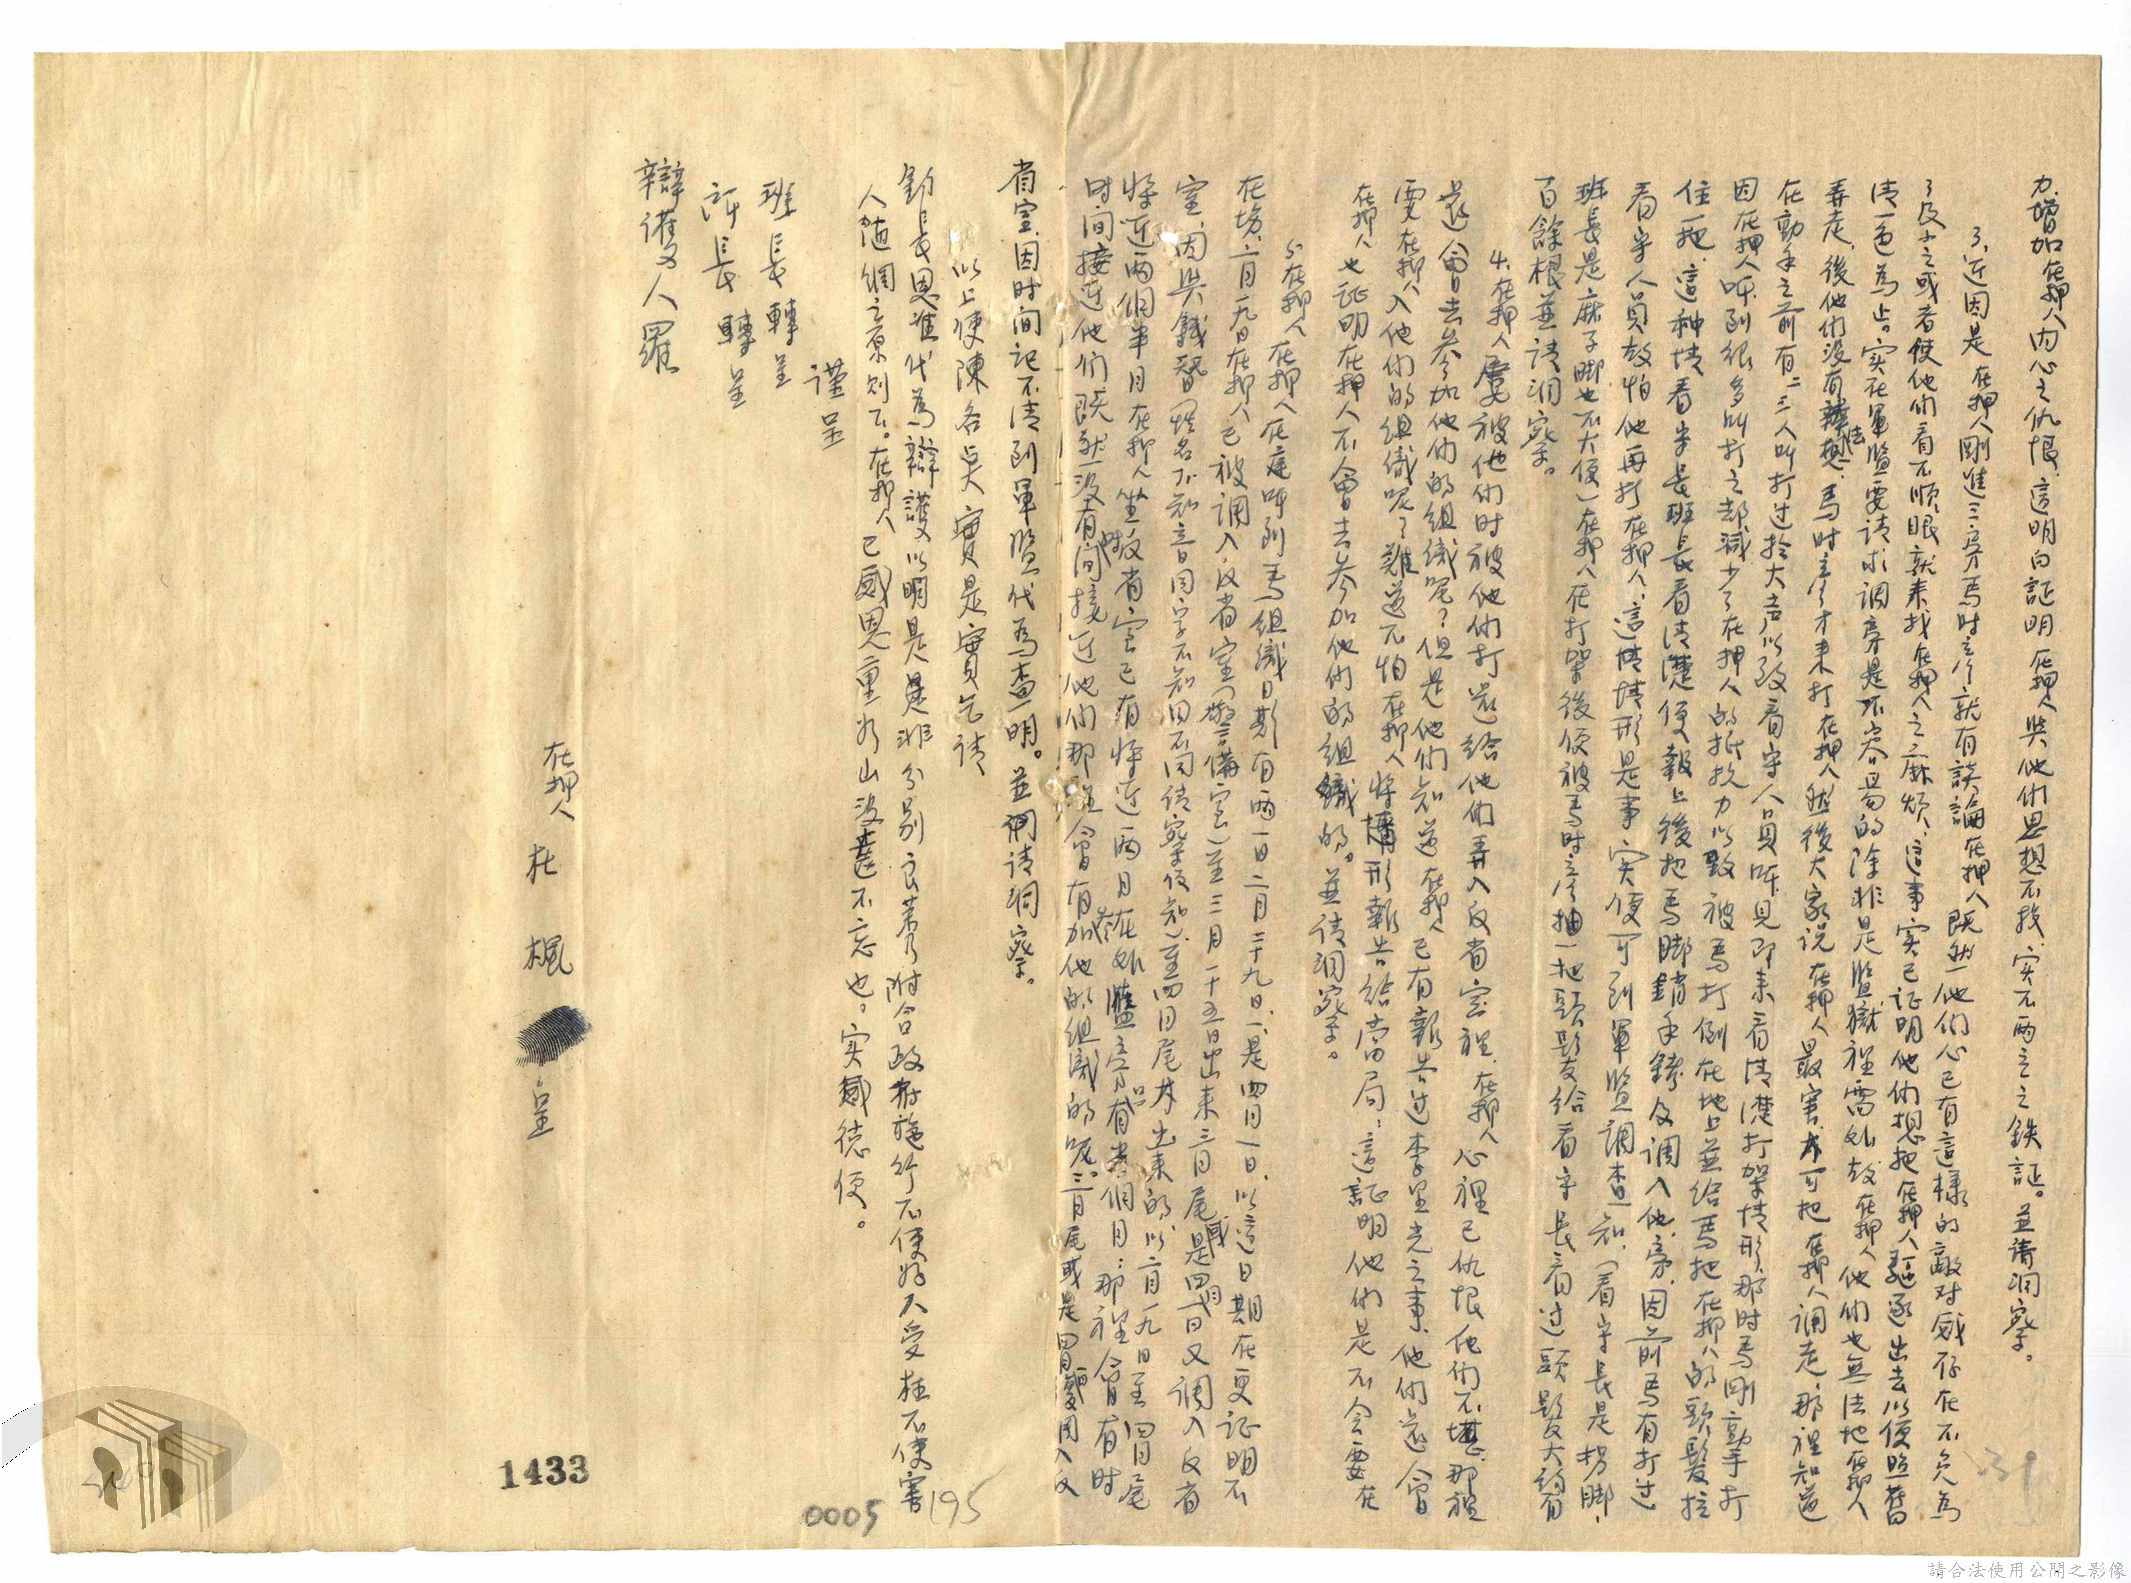 力增加在押人內心之仇恨，這明白証明在押人與他們思想不投，实不兩立之鉄証。並請洞察。
3、近因是在押人剛進三房馬时彥就有談論在押人既然他們心已有這樣的敵对感存在不免為
了及之或者使他們看不順眼就来找在押人之麻烦，這事实已证明他們想把在押人驅逐出去以便照舊
清一色為止。实在軍監要请求調房是不容易的除非是監獄裡需如故在押人他們也無法把在押人
弄走，後他們没有辦法想，馬时彥才来打在押人然後大家说在押人最害，才可把在押人調走，那裡知道
在動手之前有二三人叫打过於大声以致看守人員听見即来看清楚打架情形，那时馬剛動手打
因在押人听到很多叫打之却減少了在押人的抵抗力以致被馬打倒在地上並给馬把在押人的頭髮拉
住一把，這种情看守長班長看清楚便報上後把馬脚銷手銬及調入他房，因前馬有打过
看守人員故怕他再打在押人，這情情形是事实便可到軍監調查一知，（看守長是拐脚，
班長是麻子脚也不大便）在押人在打架後便被馬时彥抽一把頭髮给看守長看过頭髮大約有
百餘根並请洞察。
4、在押人屢被他們时被他們打還给他們弄入反省室裡，在押人心裡已仇恨他們不堪，那裡
還會去参加他們的組織呢？但是他們知道在押人已有報告过李星光之事，他們還會
要在押人入他們的組織呢？難道不怕在押人將情形報告给當局，這証明他們是不会要在
在押人也証明在押人不會去参加他們的組織的。並请洞察。
5、在押人在押人在庭听到馬組織日期有兩一日二月二十九日，一是四月一日，以這日期在更证明不
在場，二月一九日在押人已被調入反省室（警備室）至三月二十五日出来三月尾是四月或日又調入反省
室，因與錢智（姓名不知音同字不知同不同请察便知）至四月尾才出来的，以二月一九日至四月尾
將近兩個半月在押人坐反省室已有將近兩月在外監房只有半個月，那裡會有时
时间接近他們既然没有时间接近他們那裡會有参加他的組織的呢。三月尾或是四月初調入反
省室，因时间记不清到軍監代為查明。並请洞察。
以上便陳各点实是实負乞请
鈞長恩准代為辯護以明是是非分别良莠附合政府施行不使好人受枉不使害
人随網之原则下。在押人已感恩重如山没齒不忘也。实感德便。
谨呈
班長轉呈
所長轉呈
辯護人羅
在押人 杜楓 呈
1433
0005
195
請合法使用公開之影像